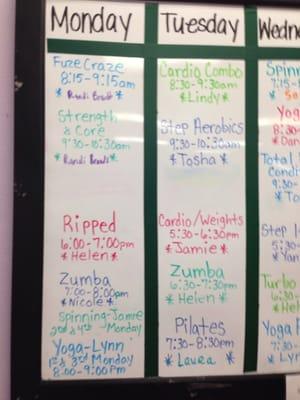 Monday
Fuze Craze
8:15-9:15am
* Randi Brandt *
Strength
& Core
9:30-10:30am
* Randi Brandt *
Ripped
6:00-7:00pm
*Helen*
Zumba
7:00-8:00pm
*Nicole*
Spinning-Jamie
2nd & 4th Monday
Yoga-Lynn
1st & 3rd Monday
8:00-9:00pm
Tuesday
Cardio Combo
8:30-9:30am
*Lindy*
Step Aerobics
9:30-10:30am
*Tosha*
Cardio/Weights
5:30-6:30pm
*Jamie*
Zumba
6:30-7:30pm
*Helen*
Pilates
7:30-8:30pm
*Laura*
Wedn
Spinn
7:15-
Yog
8:30
*Dan
Total
Condit
9:30-
*To
Step I
5:30-
*Yan
Turbo
*Hel
Yoga
7:30
*Ly